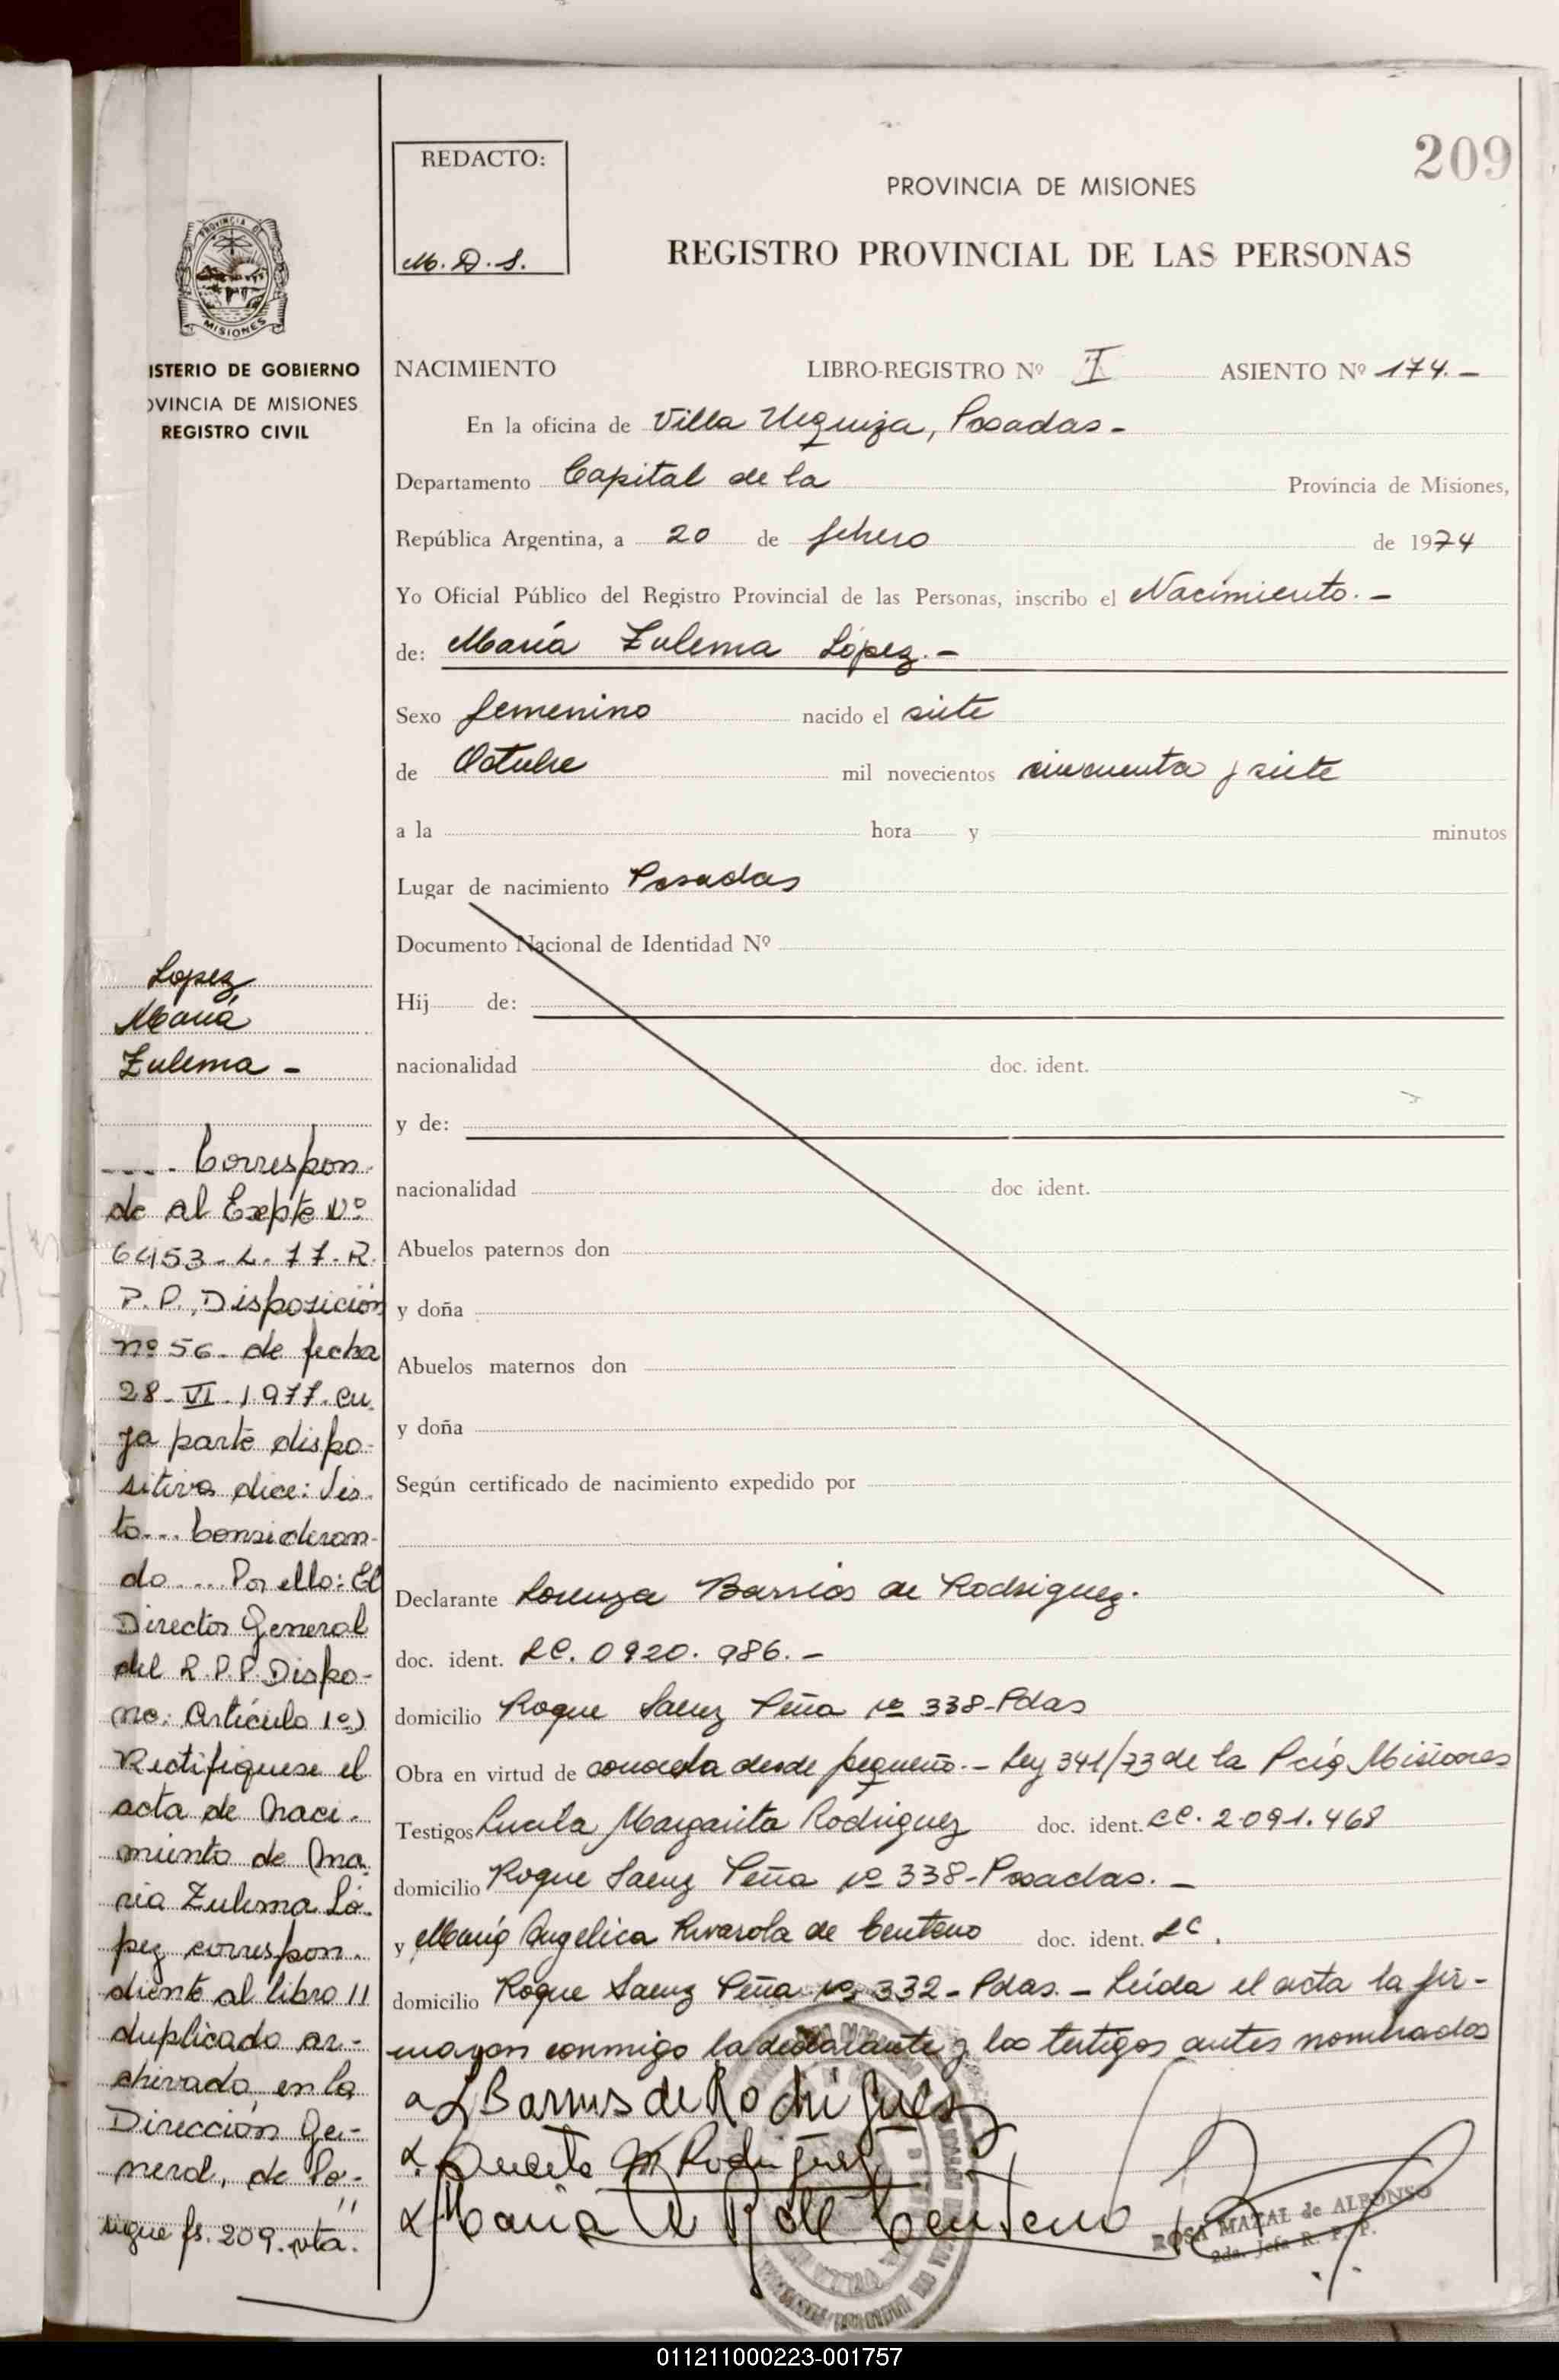 209
REDACTO:
M. D. S.
PROVINCIA DE MISIONES
REGISTRO PROVINCIAL DE LAS PERSONAS
PROVINCIA DE
MISIONES
ISTERIO DE GOBIERNO
OVINCIA DE MISIONES
REGISTRO CIVIL
NACIMIENTO LIBRO-REGISTRO Nº II ASIENTO Nº 174.-
En la oficina de Villa Urquiza, Posadas-
Departamento Capital de la Provincia de Misiones,
República Argentina, a 20 de febrero de 1974
Yo Oficial Público del Registro Provincial de las Personas, inscribo el Nacimiento.-
de: María Zulema López.-
Sexo femenino nacido el siete
de Octubre mil novecientos cincuenta y siete
a la hora y minutos
Lugar de nacimiento Posadas
Documento Nacional de Identidad Nº
Hij de:
nacionalidad doc. ident.
y de:
nacionalidad doc ident.
Abuelos paternos don
y doña
Abuelos maternos don
y doña
Según certificado de nacimiento expedido por
Declarante Lorenza Barrios de Rodriguez.
doc. ident. LC. 0920.986.-
domicilio Roque Saenz Peña Nº 338-Pdas
Obra en virtud de conocerla desde pequeño.- Ley 341/73 de la Pcia Misiones
Testigos Lucila Margarita Rodriguez doc. ident. LC. 2.091.468
domicilio Roque Saenz Peña Nº 338-Posadas.-
y María Angelica Rivarola de Centeno doc. ident. LC.
domicilio Roque Saenz Peña Nº 332-Pdas.- Leída el acta la fir-
maron conmigo la declarante y los testigos antes nombrados
L Barrios de Rodriguez
Lucila M Rodriguez
Maria A R de Centeno
ROSA MAZAL de ALFONSO
2da. Jefa R. P. P.
Lopez
María
Zulema -
.... Correspon-
de al Expte Nº
6453-L-77-R.
P.P. Disposición
nº 56 de fecha
28-VI-1977. cu
ya parte dispo-
sitiva dice: Vis-
to... Consideran-
do.... Por ello: El
Director General
del R.P.P. Dispo-
ne: Artículo 1º)
Rectifiquese el
acta de naci-
miento de Ma-
ria Zulema Ló-
pez correspon-
diente al libro II
duplicado ar-
chivado en la
Dirección Ge-
neral, de Po-
sigue fs. 209. vta.
011211000223-001757